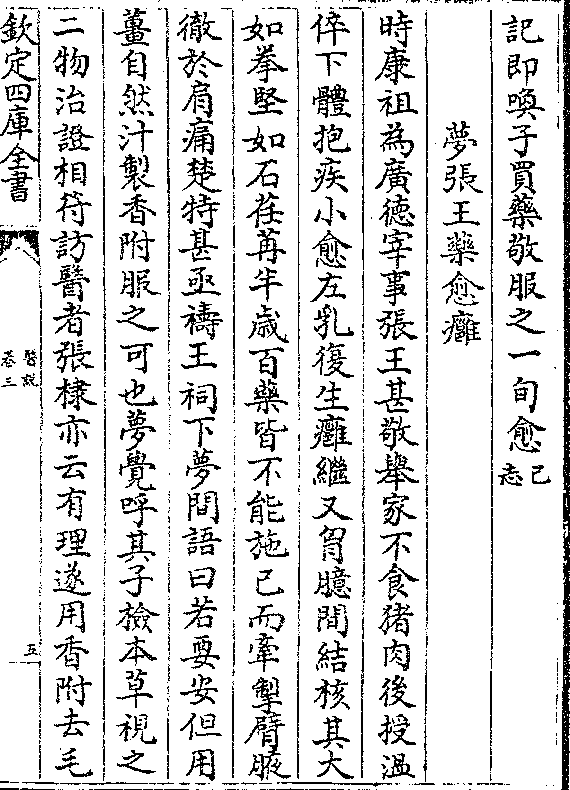 記即喚子買藥敬服之一旬愈己志
夢張王藥愈癰
時康祖為廣德宰事張王甚敬舉家不食猪肉後授温
倅下體抱疾小愈左乳復生癰繼又胷臆間結核其大
如拳堅如石荏苒半歲百藥皆不能施已而牽掣臂腋
徹於肩痛楚特甚亟禱王祠下夢間語曰若要安但用
薑自然汁製香附服之可也夢覺呼其子檢本草視之
二物治證相符訪醫者張棣亦云有理遂用香附去毛
欽定四庫全書
醫說
卷三
五